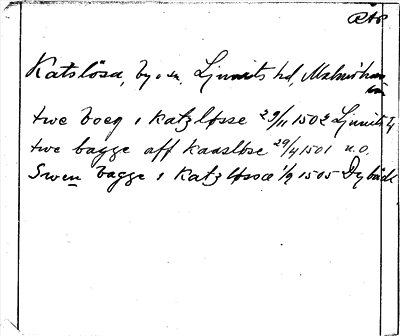 RAP
Katslösa, by o sn, Ljunits hd, Malmöhus
län
twe boeg i katzløsse 29/11 1502 Ljunits
twe bagge aff kaasløse 29/4 1501 u.o.
Swen bagge i katzløsse 1/9 1505 Dybäck